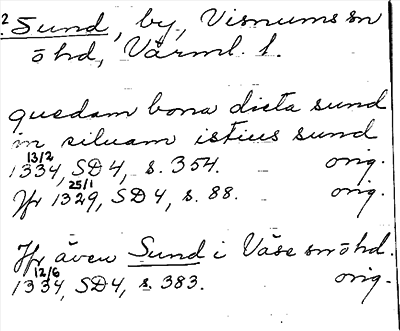 2 Sund, by, Visnums sn
ö hd, Värml. l.
quedam bona dicta sund
in siluam istius sund
13/2
1334, SD4, s. 354. orig.
25/1
Jfr 1329, SD4, s. 88. orig.
Jfr även Sund i Väse sn ö hd.
12/6
1334, SD4, s. 383. orig.